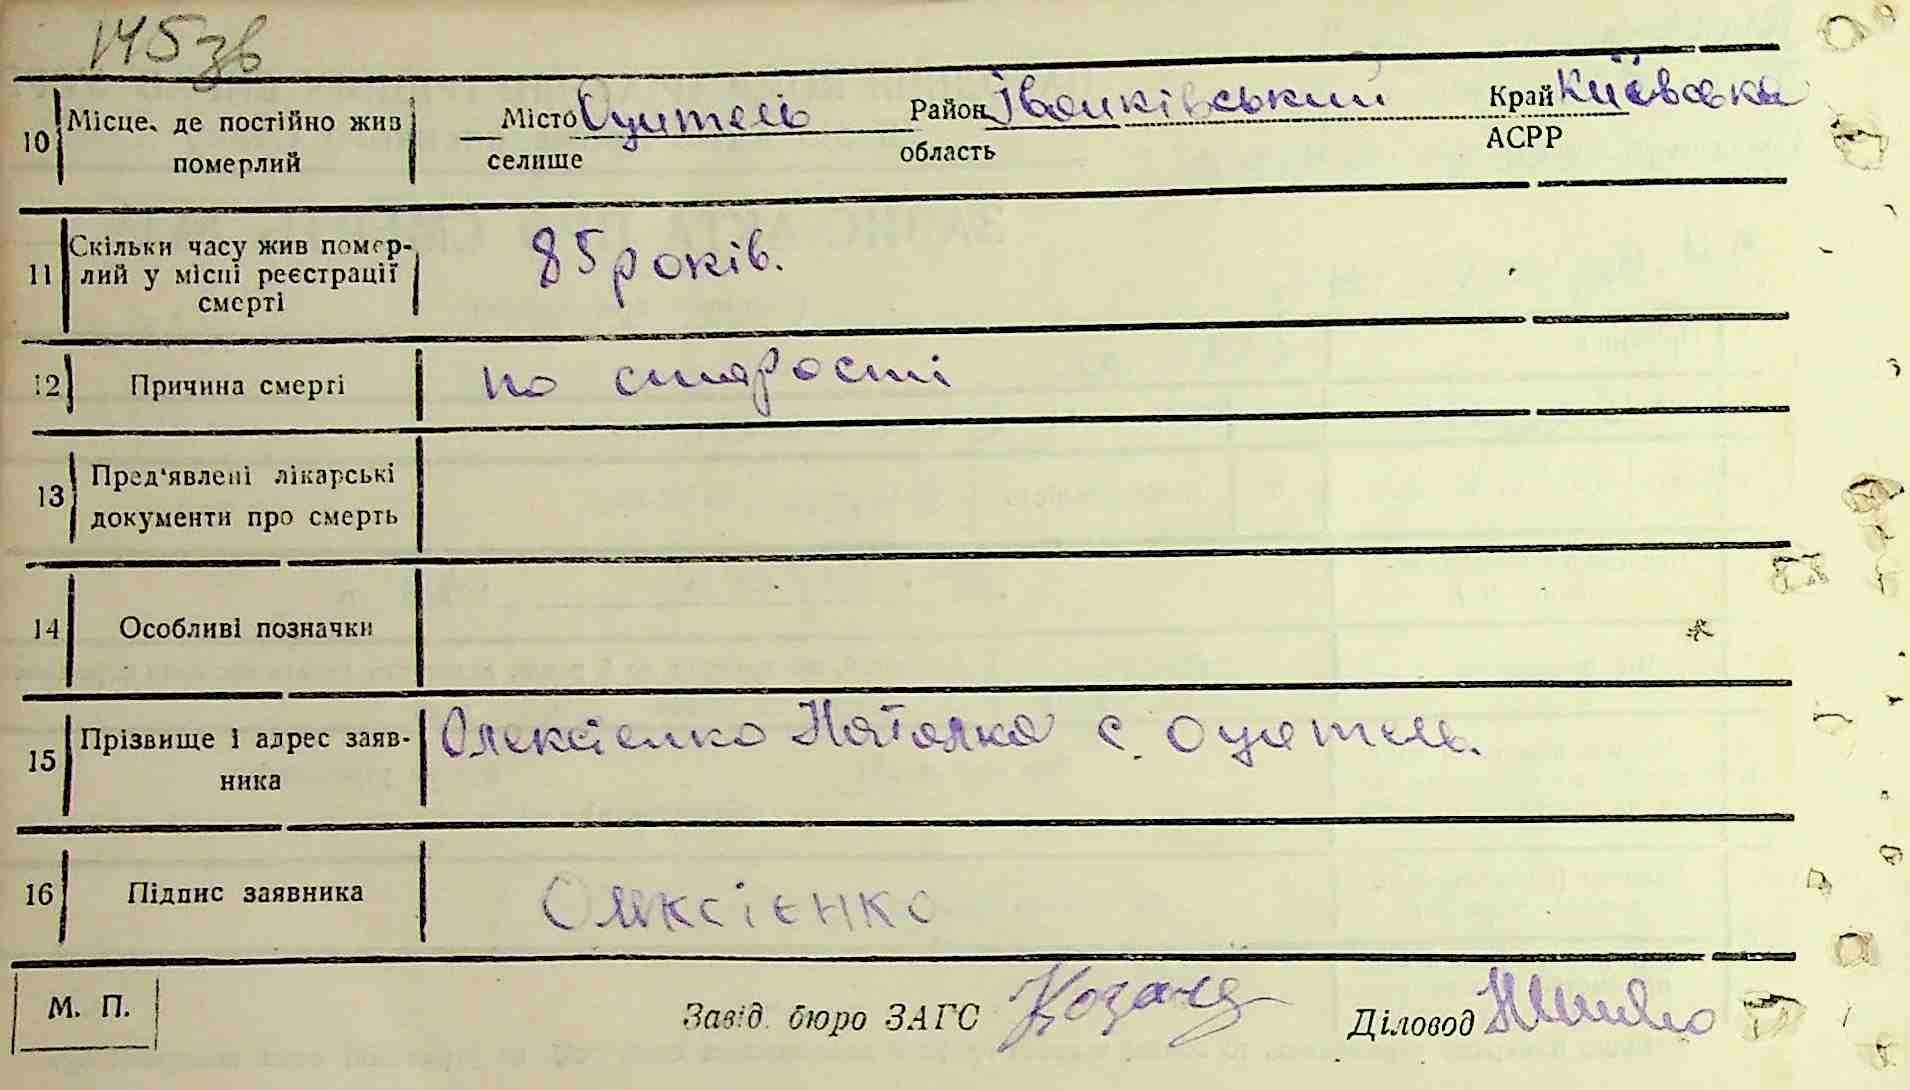 145зв
10 Місце, де постійно жив померлий
Місто Оцитель Район Іванківський Край Київська
селище область АСРР
11 Скільки часу жив помер-
лий у місці реєстрації
смерті
85 років.
12 Причина смерті по старості
13 Пред'явлені лікарські
документи про смерть
14 Особливі позначки
15 Прізвище і адрес заяв-
ника
Олексієнко Наталка с. Оцитель.
16 Підпис заявника Олексієнко
М. П.
Завід. бюро ЗАГС Діловод